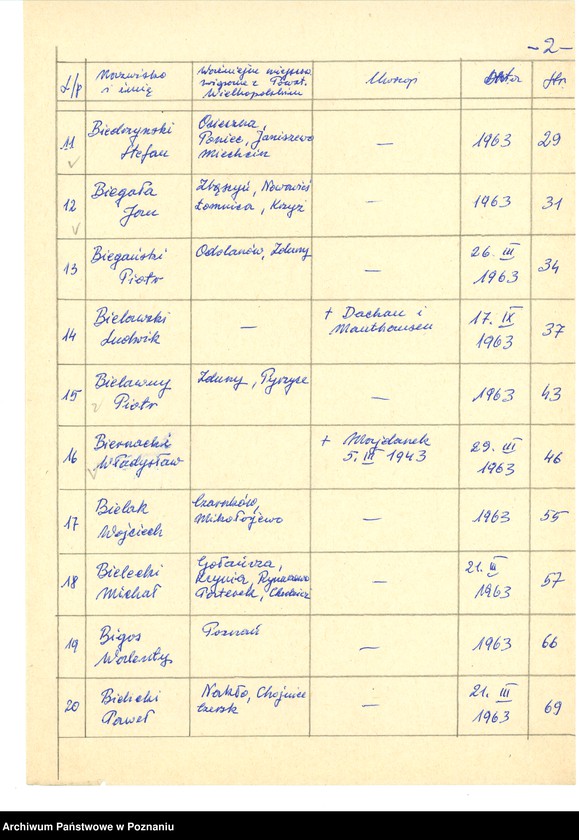 -2-
L/p Nazwisko i imię Ważniejsze miejsca związane z Powst. Wielkopolskim Uwagi Data Str.
11 Biedrzyński Stefan Osieczna, Poniec, Janiszewo Miechcin — 1963 29
12 Biegała Jan Zbąszyń, Nowawieś Łomnica, Krzyż — 1963 31
13 Biegański Piotr Odolanów, Zduny — 26. III 1963 34
14 Bielawski Ludwik — + Dachau i Mauthausen 17. IX 1963 37
15 Bielawny Piotr Zduny, Pyzyce — 1963 43
16 Biernacki Władysław + Majdanek 5. III 1943 29. III 1963 46
17 Bielak Wojciech Czarnków, Mikołajewo — 1963 55
18 Bielecki Michał Gołańcza, Kcynia, Rynarzewo — 21. III 1963 57
19 Bigos Walenty Poznań — 1963 66
20 Bielicki Paweł Nakło, Chojnice Czersk — 21. III 1963 69
Archiwum Państwowe w Poznaniu